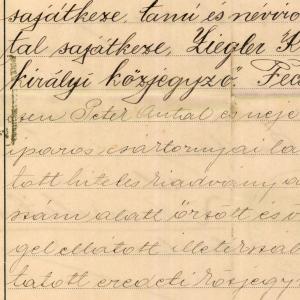 sajátkeze, tanú és névíró
tal sajátkeze, Ziegler K
királyi közjegyző." Fe
sen Péter Antal és neje
iparos csáktornyai la
tott hiteles kiadvány a
szám alatt őrzött és ö
gel ellátott illetes szab
tatott eredeti közjegy